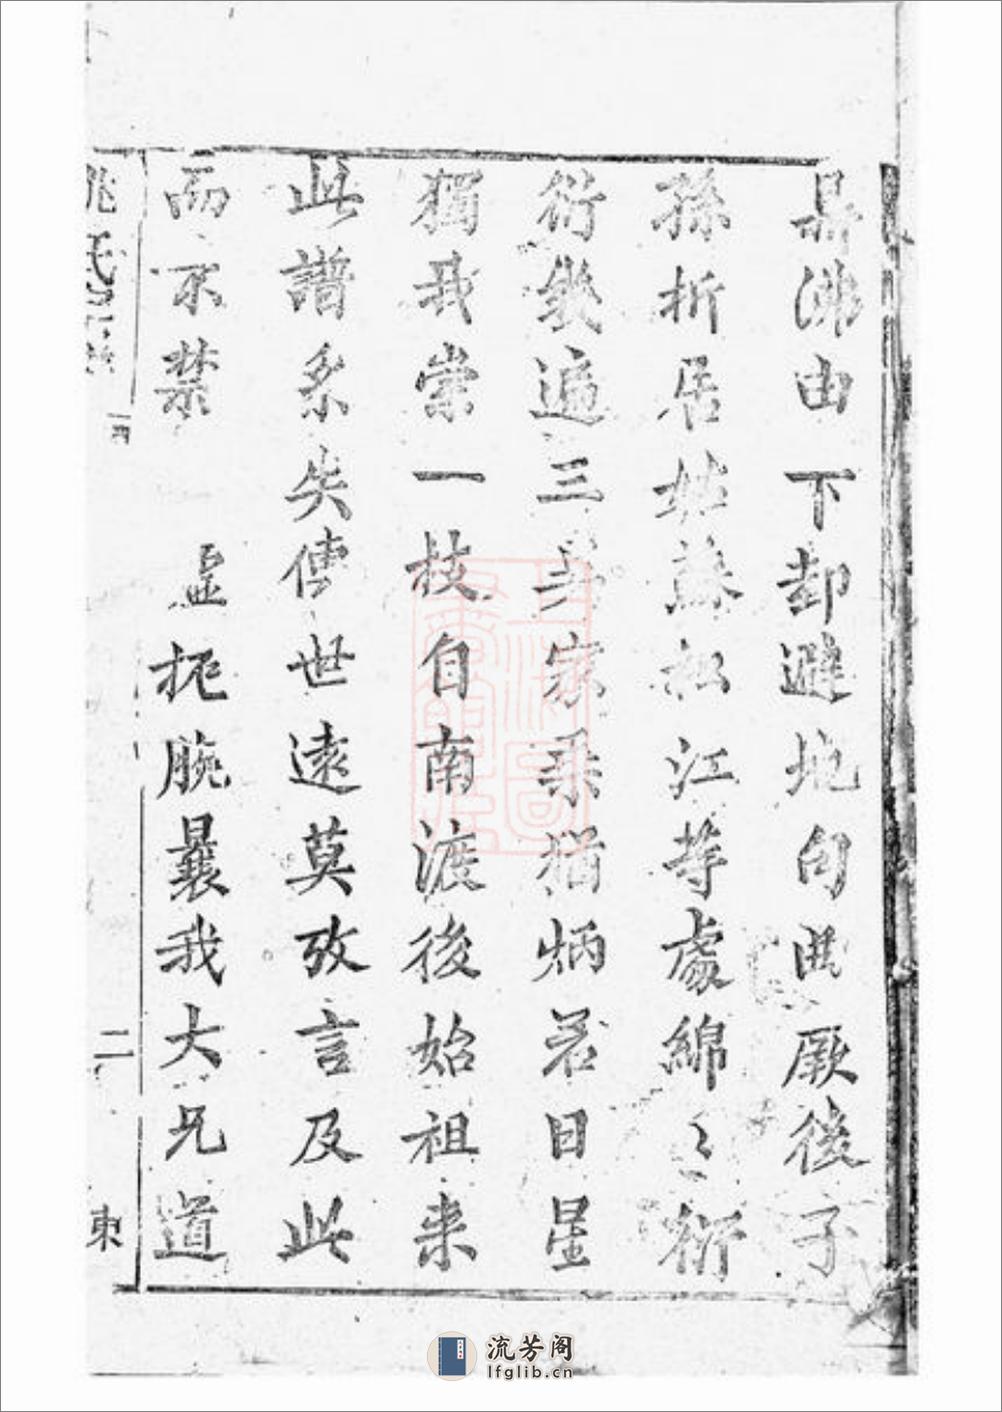 鼎沸由下邽避地句曲厥後子
孫折居姑蘇松江等處綿〻衍
衍幾遍三吳家乘猶炳若日星
獨我崇一枝自南渡後始祖來
此譜系失傳世遠莫攷言及此
而不禁 虛扼腕曩我大兄道
氏
二
東
上海圖書館藏
流芳阁
lfglib.cn